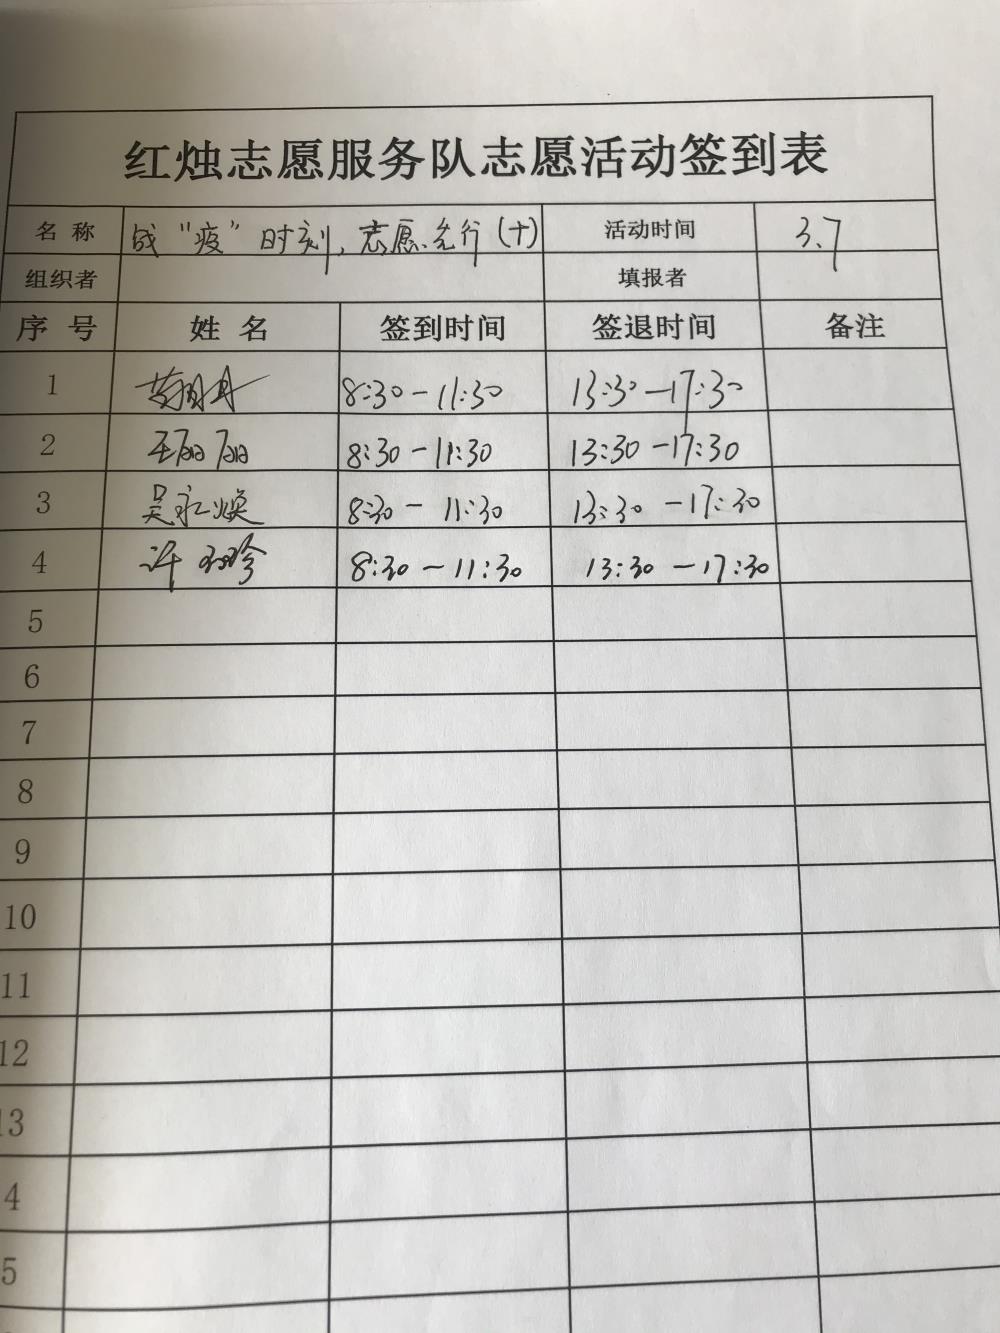 红烛志愿服务队志愿活动签到表
名称 战“疫”时刻，志愿先行(十) 活动时间 3.7
组织者 填报者
序号 姓名 签到时间 签退时间 备注
1 8:30-11:30 13:30-17:30
2 王丽丽 8:30-11:30 13:30-17:30
3 吴永焕 8:30-11:30 13:30-17:30
4 许 8:30-11:30 13:30-17:30
5
6
7
8
9
10
11
12
13
4
5